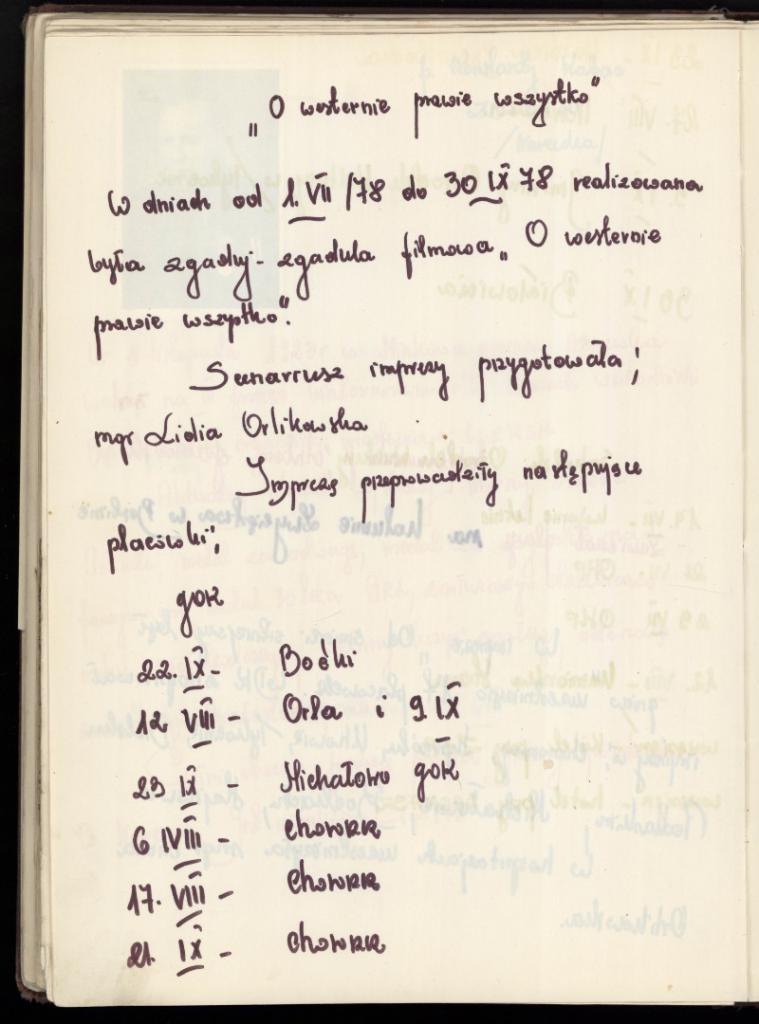 „O westernie prawie wszystko"
W dniach od 1. VII /78 do 30 IX 78 realizowana
była zgaduj-zgadula filmowa „O westernie
prawie wszystko".
Scenariusz imprezy przygotowała;
mgr Lidia Orlikowska
Imprezę przeprowadziły następujące
placówki;
GOK
22. IX - Boćki
12. VIII - Orla i 9 IX
23 IX - Michałowo GOK
6 VIII -
17. VIII -
21. IX -